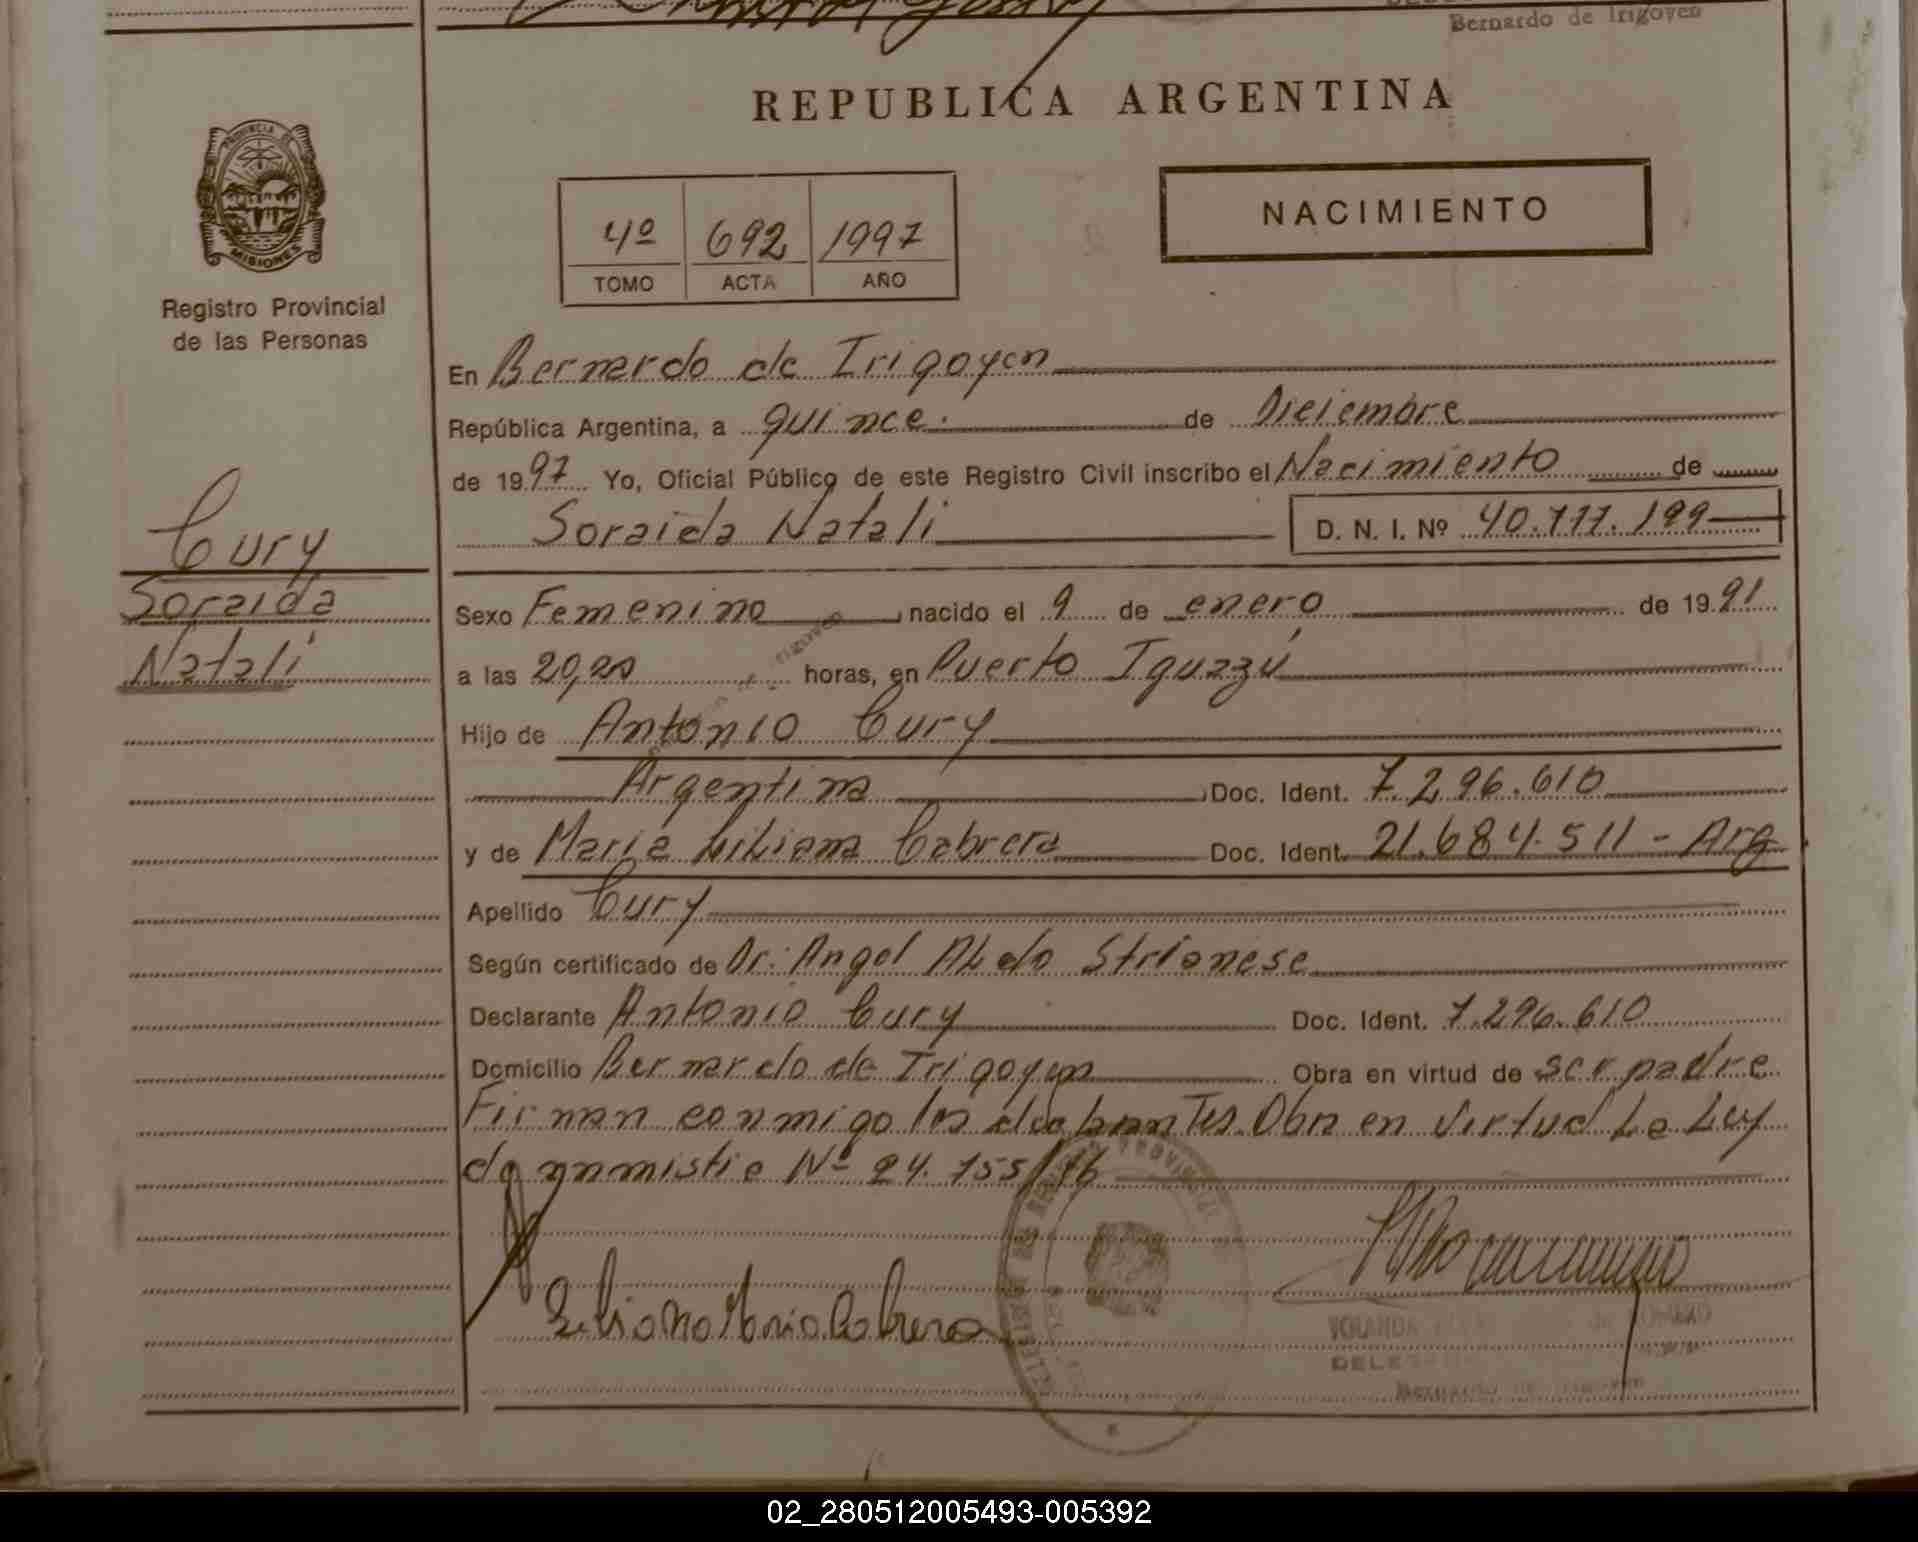 Bernardo de Irigoyen
REPUBLICA ARGENTINA
PROVINCIA DE
MISIONES
Registro Provincial
de las Personas
4º 692 1997
TOMO ACTA AÑO
NACIMIENTO
En Bernardo de Irigoyen
República Argentina, a quince. de Diciembre
de 1997 Yo, Oficial Público de este Registro Civil inscribo el Nacimiento de
Soraida Natali D. N. I. Nº 40.777.199
Cury
Soraida
Natali
Sexo Femenino nacido el 9 de enero de 1991
a las 20,20 horas, en Puerto Iguazú
Hijo de Antonio Cury
Argentina Doc. Ident. 7.296.610
y de Maria Liliana Cabrera Doc. Ident. 21.684.511 - Arg
Apellido Cury
Según certificado de Dr. Angel Aldo Strianese
Declarante Antonio Cury Doc. Ident. 7.296.610
Domicilio Bernardo de Irigoyen Obra en virtud de ser padre
Firman conmigo los Obra en virtud La Ley
de Nº 24.755/96
Liliana Maria Cabrera
YOLANDA de
Bernardo de Irigoyen
02_280512005493-005392